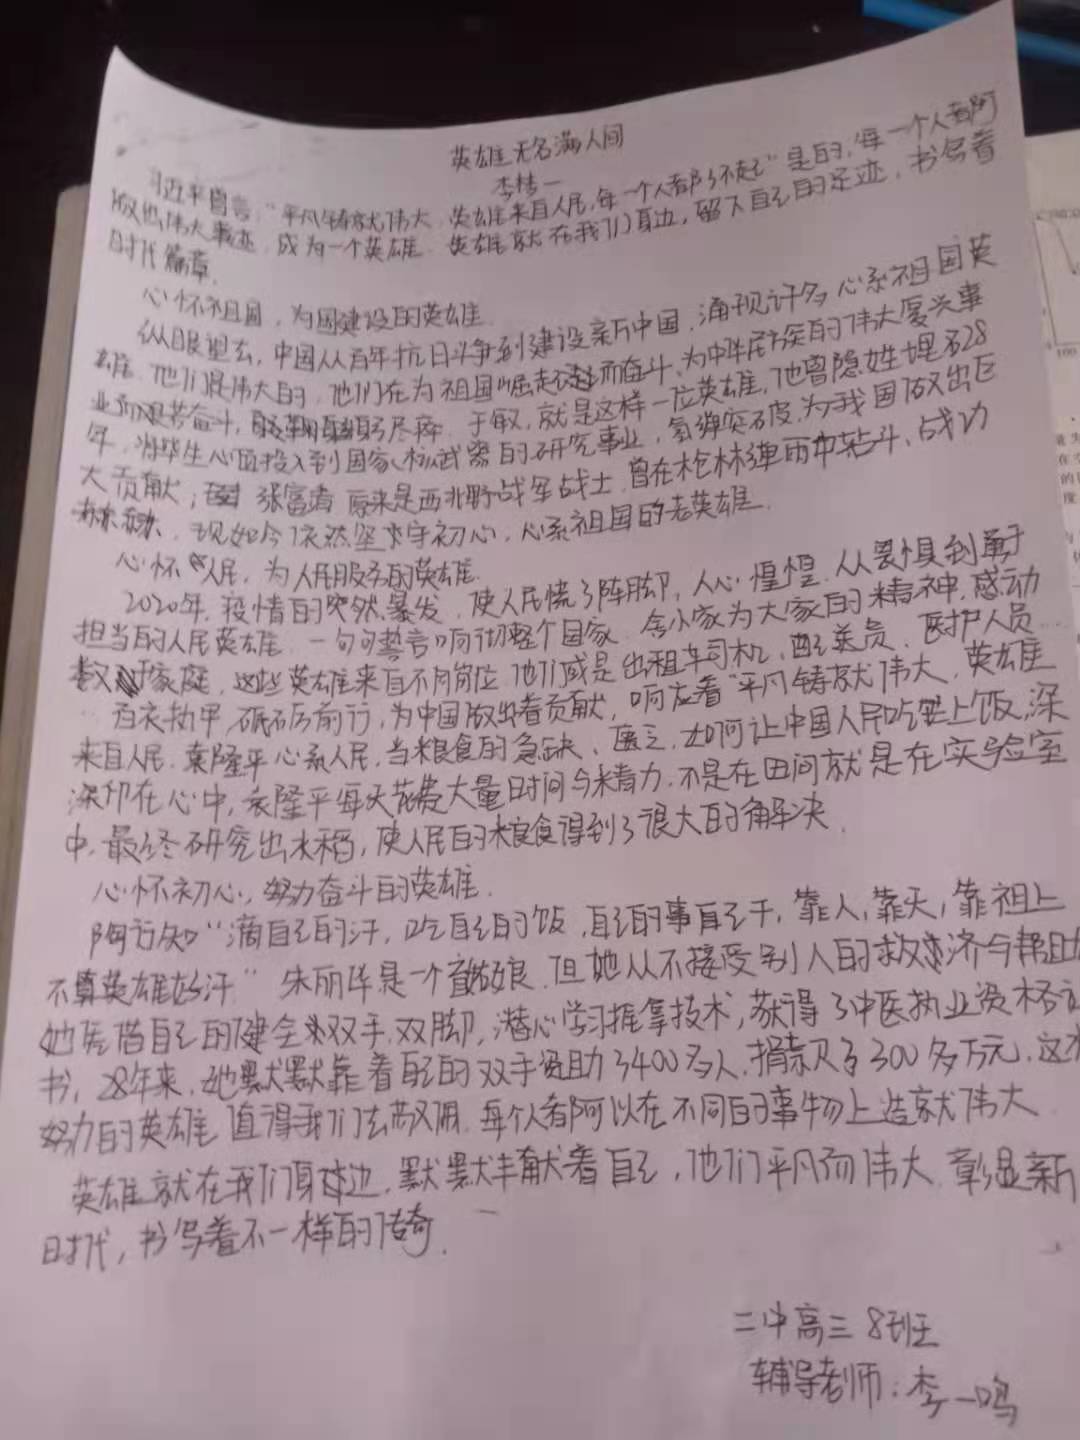 英雄无名满人间
李桔一
习近平曾言:“平凡铸就伟大,英雄来自人民,每一个人都了不起”是的,每一个人都可
做出伟大事迹,成为一个英雄.英雄就在我们身边,留下自己的足迹,书写着
时代篇章.
心怀祖国,为国建设的英雄.
纵眼望去,中国从百年抗日斗争到建设新中国,涌现许多心系祖国英
雄.他们是伟大的,他们在为祖国崛起而奋斗,为中华民族的伟大复兴事
业而艰苦奋斗,鞠躬尽瘁.于敏,就是这样一位英雄,他曾隐姓埋名28
年,将毕生心血投入到国家核武器的研究事业,氢弹突破,为我国做出巨
大贡献;张富清原来是西北野战军战士,曾在枪林弹雨中苦斗、战功
赫赫,现如今依然坚守初心,心系祖国的老英雄.
心怀人民,为人民服务的英雄.
2020年,疫情的突然暴发,使人民慌了阵脚,人心惶惶.从畏惧到勇于
担当的人民英雄.一句句誓言响彻整个国家.舍小家为大家的精神,感动
家庭,这些英雄来自不同岗位,他们或是出租车司机、配送员、医护人员...
白衣执甲,砥砺前行,为中国做出着贡献,响应着“平凡铸就伟大,英雄
来自人民.袁隆平心系人民,当粮食的急缺、匮乏,如何让中国人民吃上饭,深
深印在心中,袁隆平每天花费大量时间与精力.不是在田间就是在实验室
中,最终研究出水稻,使人民的粮食得到了很大的解决.
心怀初心,努力奋斗的英雄.
陶行知“滴自己的汗,吃自己的饭,自己的事自己干,靠人,靠天,靠祖上
不算英雄好汉”朱丽华是一个盲姑娘.但她从不接受别人的救济与帮助
她凭借自己的健全双手、双脚,潜心学习推拿技术,获得了中医执业资格证
书,28年来,她默默靠着自己的双手资助了400多人,捐款了300多万元.这
努力的英雄值得我们去敬佩.每个人都可以在不同的事物上造就伟大.
英雄就在我们身边,默默奉献着自己,他们平凡而伟大.彰显新
时代,书写着不一样的传奇.
二中高三8班
辅导老师:李一鸣